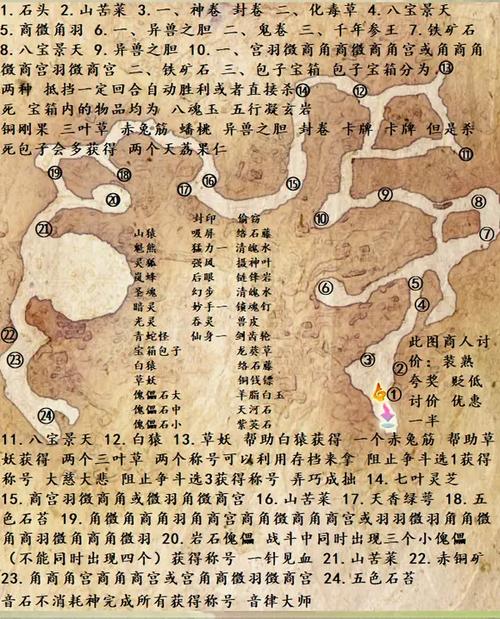 1.石头 2.山苦菜 3.一、神卷 封卷 二、化毒草 4.八宝景天
5.商徵角羽 6.一、异兽之胆 二、鬼卷 三、千年参王 7.铁矿石
8.八宝景天 9.异兽之胆 10.一、宫羽徵商角商徵商角宫或角商角
徵商宫羽徵商宫 二、铁矿石 三、包子宝箱 包子宝箱分为 ⑬
两种 抵挡一定回合自动胜利或者直接杀 ⑭ ⑫
死 宝箱内的物品均为 八魂玉 五行凝玄岩
铜刚果 三叶草 赤兔筋 蟠桃 异兽之胆 封卷 卡牌 卡牌 但是杀
死包子会多获得 两个天荔果仁 ⑪
⑲ ⑱ ⑰ ⑯ ⑮
⑳ ⑩ ⑨ ⑧
㉑ ⑦
封印 偷窃
山猿 吸屏 络石藤
魈熊 猛力一 清魄水
灵狐 强风 摄神叶
岚蜂 后眼 链绊岩
圣魂 幻步 清魄水
暗灵 妙手一 镇魂钉
光灵 吞灵 兽皮
青蛇怪 仙身一 剑齿轮
宝箱包子 龙葵草
白猿 络石藤
草妖 铜钱镖
傀儡石大 羊脂白玉
傀儡石中 天河石
傀儡石小 紫英石
⑥ ⑤
④
㉒ ③ ②
㉓ ①
㉔
此图商人讨
价：装熟
夸奖 贬低
讨价 优惠
一半
11.八宝景天 12.白猿 13.草妖 帮助白猿获得 一个赤兔筋 帮助草
妖获得 两个三叶草 两个称号可以利用存档来拿 阻止争斗选1获得
称号 大慈大悲 阻止争斗选3获得称号 弄巧成拙 14.七叶灵芝
15.商宫羽徵商角或徵羽角徵商宫 16.山苦菜 17.天香绿萼 18.五
色石苔 19.角徵角商角羽角商宫商角徵商角商宫或羽羽徵羽角角徵
角商羽徵商角徵羽 20.岩石傀儡 战斗中同时出现三个小傀儡
（不能同时出现四个）获得称号 一针见血 21.山苦菜 22.赤铜矿
23.角商角商宫角商宫或宫角商徵羽徵商宫 24.五色石苔
音石不消耗神完成所有获得称号 音律大师